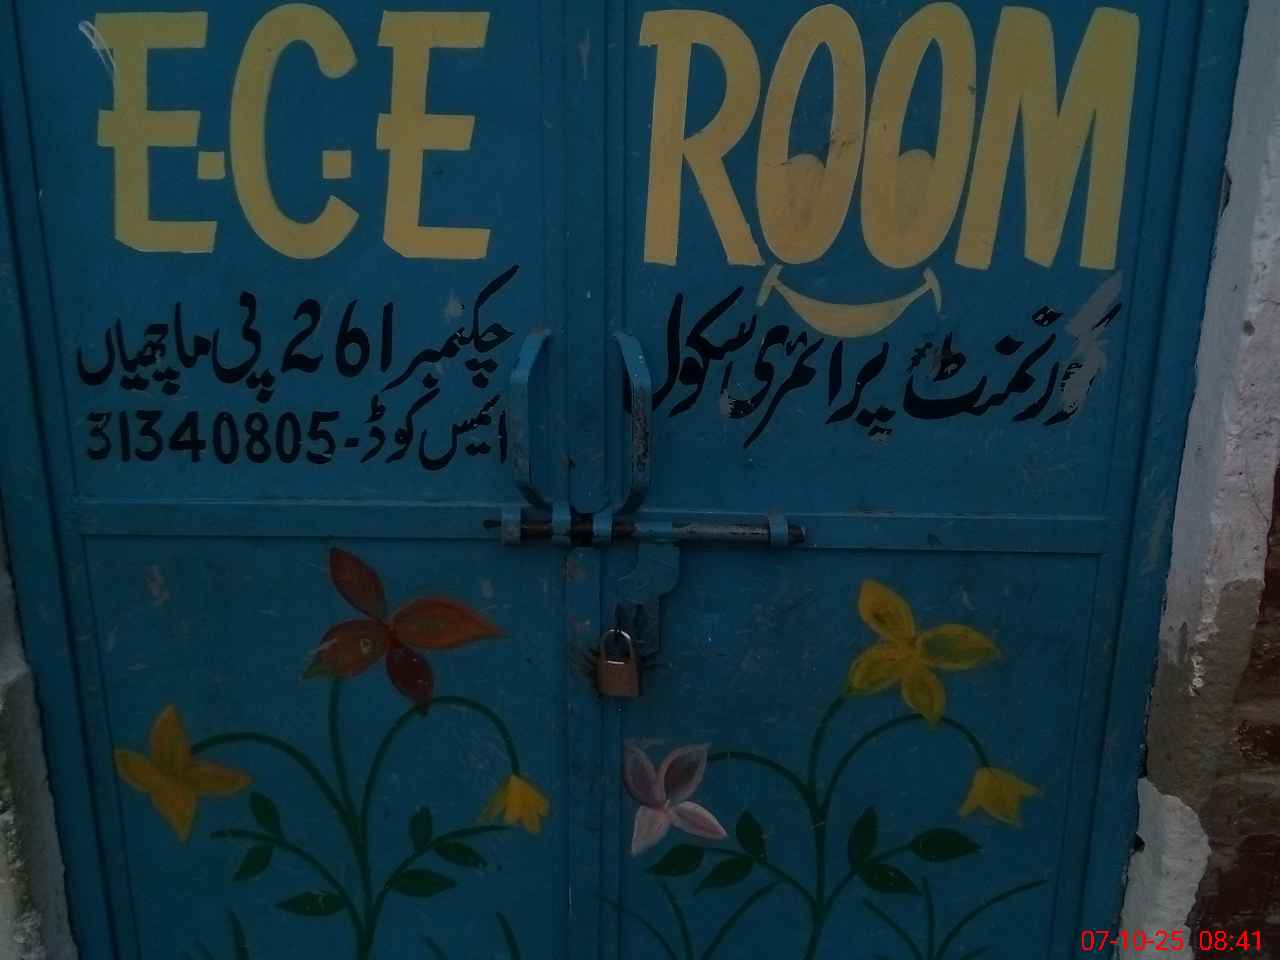 E.C.E ROOM
گورنمنٹ پرائمری سکول
چکنمبر 261 پی ماچھیاں
ائمیس کوڈ-31340805
07-10-25 08:41